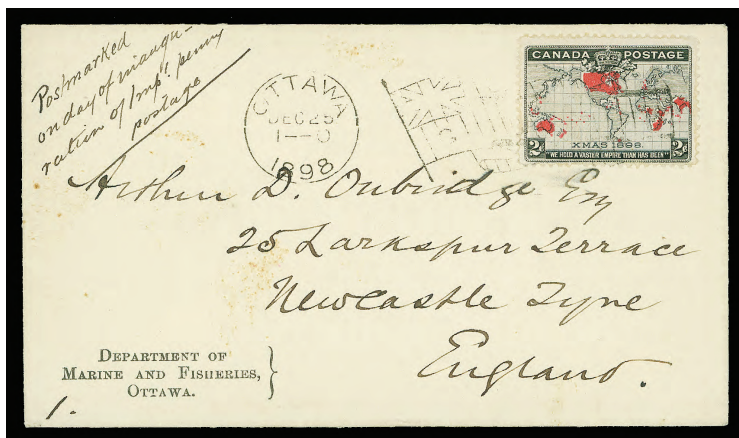 Postmarked
on day of inaugu-
ration of Imp'l penny
postage
OTTAWA
DEC 25
1-0
1898
CANADA POSTAGE
XMAS 1898
2c 2c
"WE HOLD A VASTER EMPIRE THAN HAS BEEN"
Arthur D. Oubridge Esq
25 Larkspur Terrace
Newcastle Tyne
England.
DEPARTMENT OF
MARINE AND FISHERIES,
OTTAWA.
1.